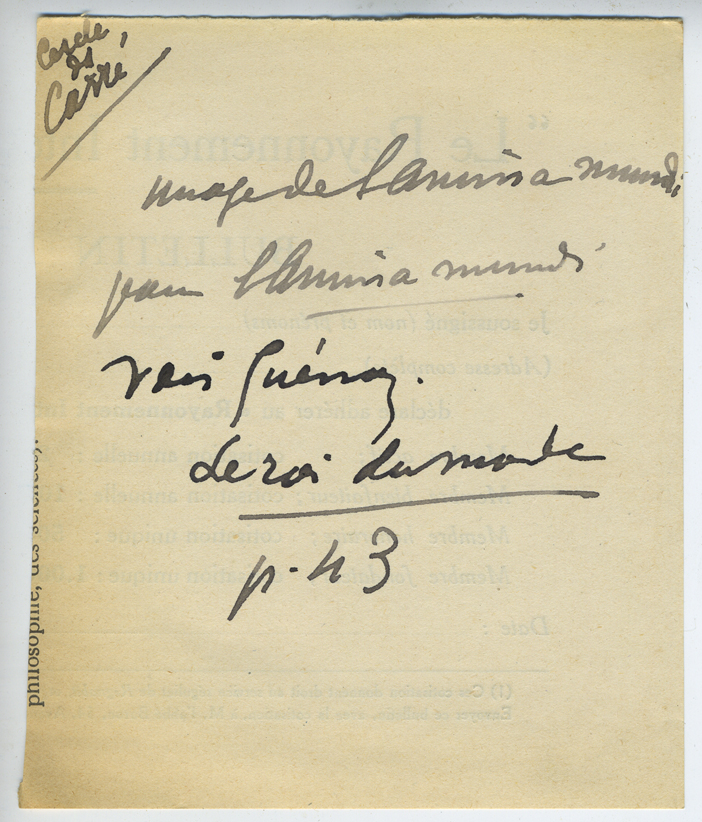 Cercle
et
Carré
image de l'Anima mundi
pour l'Anima mundi
voir Guénon.
Le roi du monde
p. 43
philosophie, des sciences,
"Le Rayonnement
BULLETIN
Je soussigné (nom et prénoms)
(Adresse complète)
déclare adhérer au « Rayonnement
cotisation annuelle :
Membre bienfaiteur ; cotisation annuelle :
Membre honoraire ; cotisation unique :
Membre fondateur ; cotisation unique :
Date :